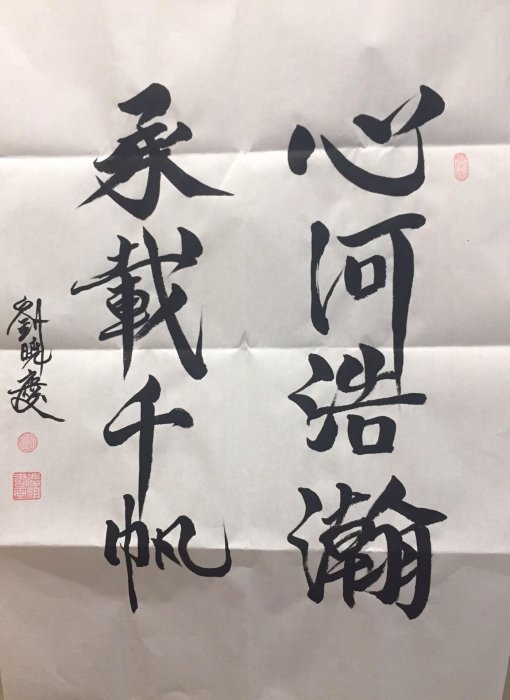 心河浩瀚
承載千帆
劉曉慶